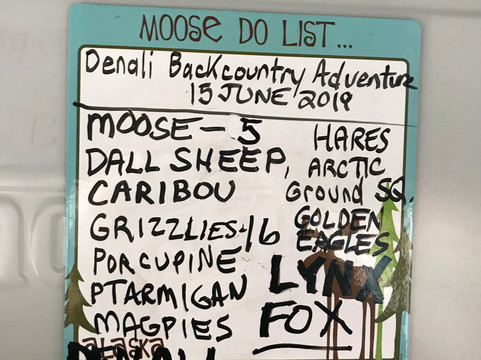 MOOSE DO LIST...
Denali Backcountry Adventure
15 JUNE 2019
MOOSE - 5
DALL SHEEP,
CARIBOU
GRIZZLIES-16
PORCUPINE
PTARMIGAN
MAGPIES
HARES
ARCTIC
Ground SQ.
GOLDEN
EAGLES
LYNX
FOX
ALASKA
DENALI